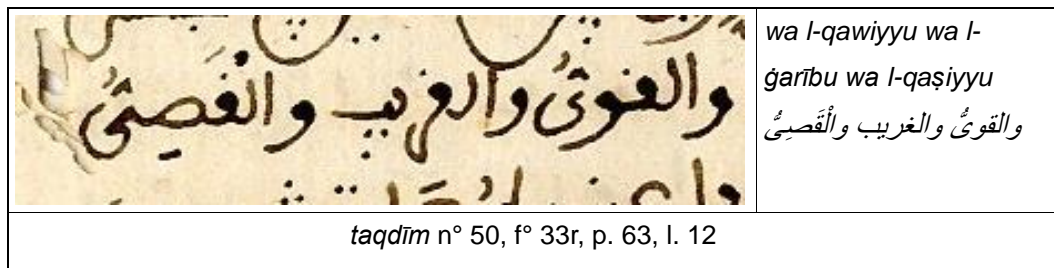 والقوىُّ والغريب والْقَصِىُّ
wa l-qawiyyu wa l-
ġarību wa l-qaṣiyyu
والقوىُّ والغريب والْقَصِىُّ
taqdīm n° 50, f° 33r, p. 63, l. 12